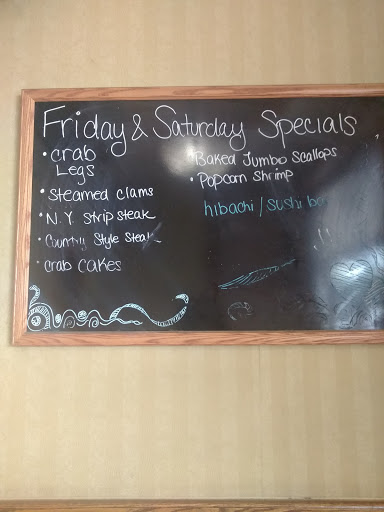 Friday & Saturday Specials
• Crab
Legs
• Steamed clams
• N.Y strip steak
• Country Style Steak
• crab cakes
• Baked Jumbo Scallops
• Popcorn Shrimp
hibachi / sushi